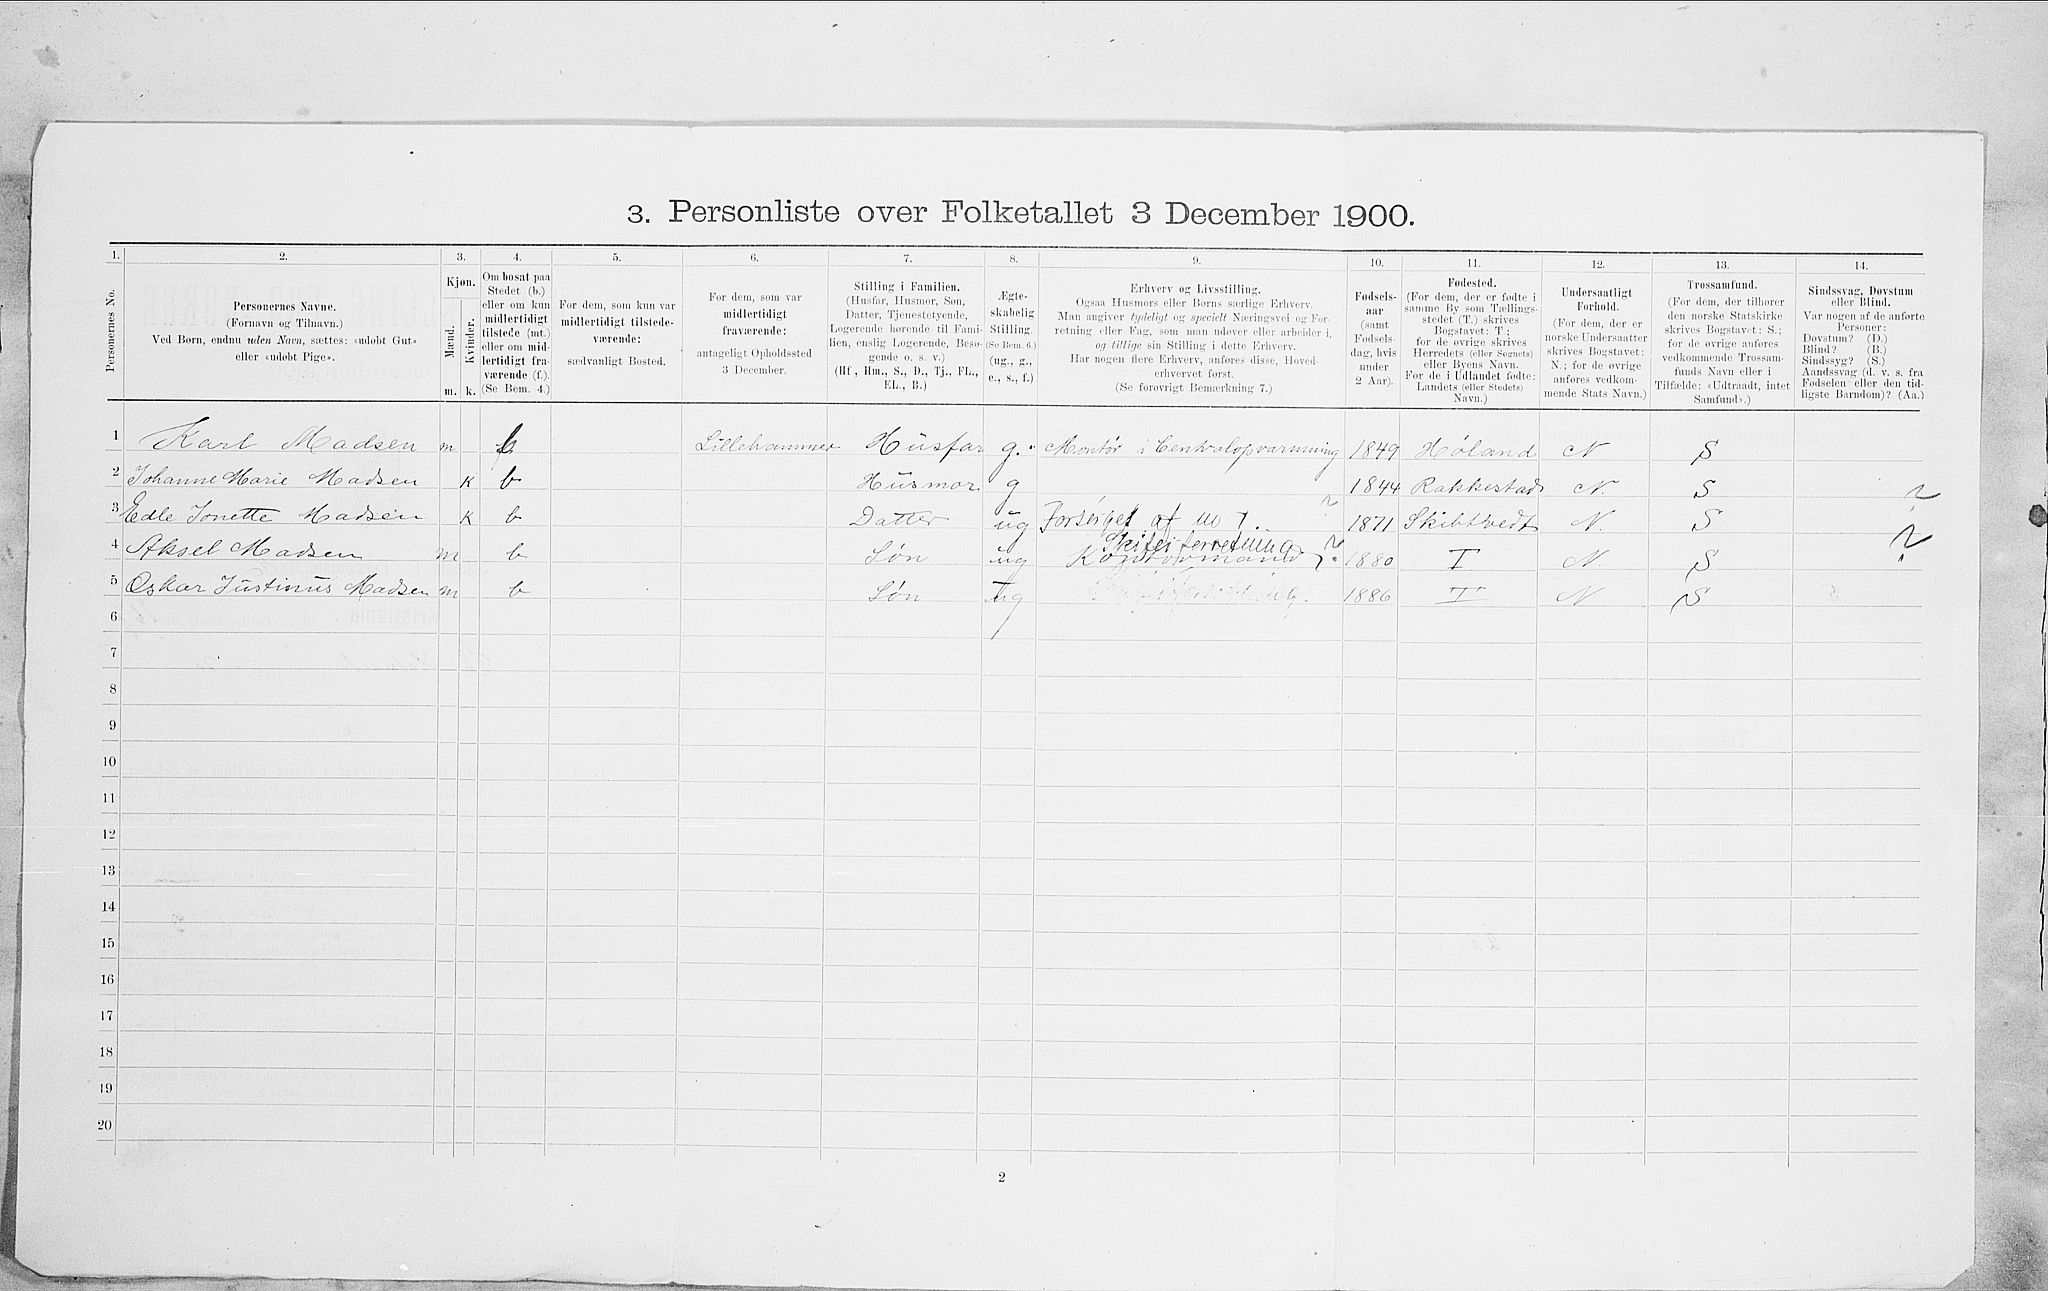 3. Personliste over Folketallet 3 December 1900.
1. 2. 3. 4. 5. 6. 7. 8. 9. 10. 11. 12. 13. 14.
Personernes No.
Personernes Navne.
(Fornavn og Tilnavn.)
Ved Børn, endnu uden Navn, sættes: «udøbt Gut»
eller «udøbt Pige».
Kjøn.
Mænd.
Kvinder.
m. k.
Om bosat paa
Stedet (b.)
eller om kun
midlertidigt
tilstede (mt.)
eller om mid-
lertidigt fra-
værende (f.).
(Se Bem. 4.)
For dem, som kun var
midlertidigt tilstede-
værende:
sædvanligt Bosted.
For dem, som var
midlertidigt
fraværende:
antageligt Opholdssted
3 December.
Stilling i Familien.
(Husfar, Husmor, Søn,
Datter, Tjenestetyende,
Logerende hørende til Fami-
lien, enslig Logerende, Besø-
gende o. s. v.)
(Hf., Hm., S., D., Tj., FL.,
EL., B.)
Ægte-
skabelig
Stilling.
(Se Bem. 6.)
(ug., g.,
e., s., f.)
Erhverv og Livsstilling.
Ogsaa Husmors eller Børns særlige Erhverv.
Man angiver tydeligt og specielt Næringsvei og For-
retning eller Fag, som man udøver eller arbeider i,
og tillige sin Stilling i dette Erhverv.
Har nogen flere Erhverv, anføres disse, Hoved-
erhvervet først.
(Se forøvrigt Bemerkning 7.)
Fødsels-
aar
(samt
Fødsels-
dag, hvis
under
2 Aar).
Fødested.
(For dem, der er fødte i
samme By som Tællings-
stedet (T.) skrives
Bogstavet: T;
for de øvrige skrives
Herredets (eller Sognets)
eller Byens Navn.
For de i Udlandet fødte:
Landets (eller Stedets)
Navn.)
Undersaatligt
Forhold.
(For dem, der er
norske Undersaatter
skrives Bogstavet:
N.; for de øvrige
anføres vedkom-
mende Stats Navn.)
Trossamfund.
(For dem, der tilhører
den norske Statskirke
skrives Bogstavet: S.;
for de øvrige anføres
vedkommende Trossam-
funds Navn eller i
Tilfælde: «Udtraadt, intet
Samfund».)
Sindssvag, Døvstum
eller Blind.
Var nogen af de anførte
Personer:
Døvstum? (D.)
Blind? (B.)
Sindssyg? (S.)
Aandssvag (d. v. s. fra
Fødselen eller den tid-
ligste Barndom)? (Aa.)
1 Karl Madsen m Lillehammer Husfar g. Montør i Centralopvarmning 1849 Høland N S
2 Johanne Marie Madsen K b Husmor g 1844 Rakkestad N. S
3 Edle Jonette Madsen K b Datter ug Forsørget af ? 1871 Skibtvedt N. S ?
4 Aksel Madsen m b Søn ug Kontormand ? 1880 T N. S ?
5 Oskar Justinus Madsen m b Søn ug 1886 T N S
6
7
8
9
10
11
12
13
14
15
16
17
18
19
20
2